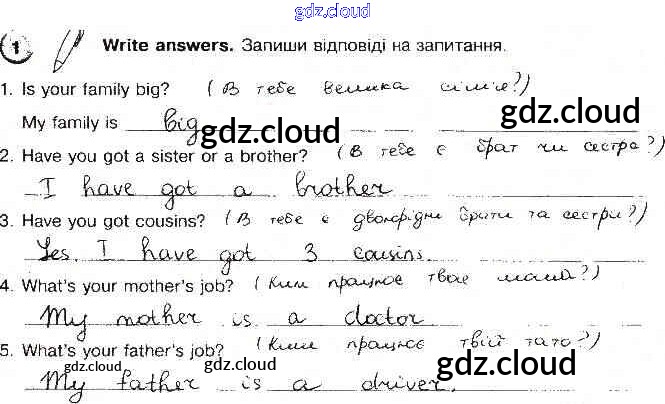 gdz.cloud
gdz.cloud
1 Write answers. Запиши відповіді на запитання.
1. Is your family big? (В тебе велика сім'я?)
gdz.cloud
My family is big
gdz.cloud
2. Have you got a sister or a brother? (В тебе є брат чи сестра?)
I have got a brother
3. Have you got cousins? (В тебе є двоюрідні брати та сестри?)
Yes. I have got 3 cousins.
4. What's your mother's job? (Ким працює твоя мама?)
My mother is a doctor
5. What's your father's job? (Ким працює твій тато?)
gdz.cloud gdz.cloud gdz.cloud
My father is a driver.